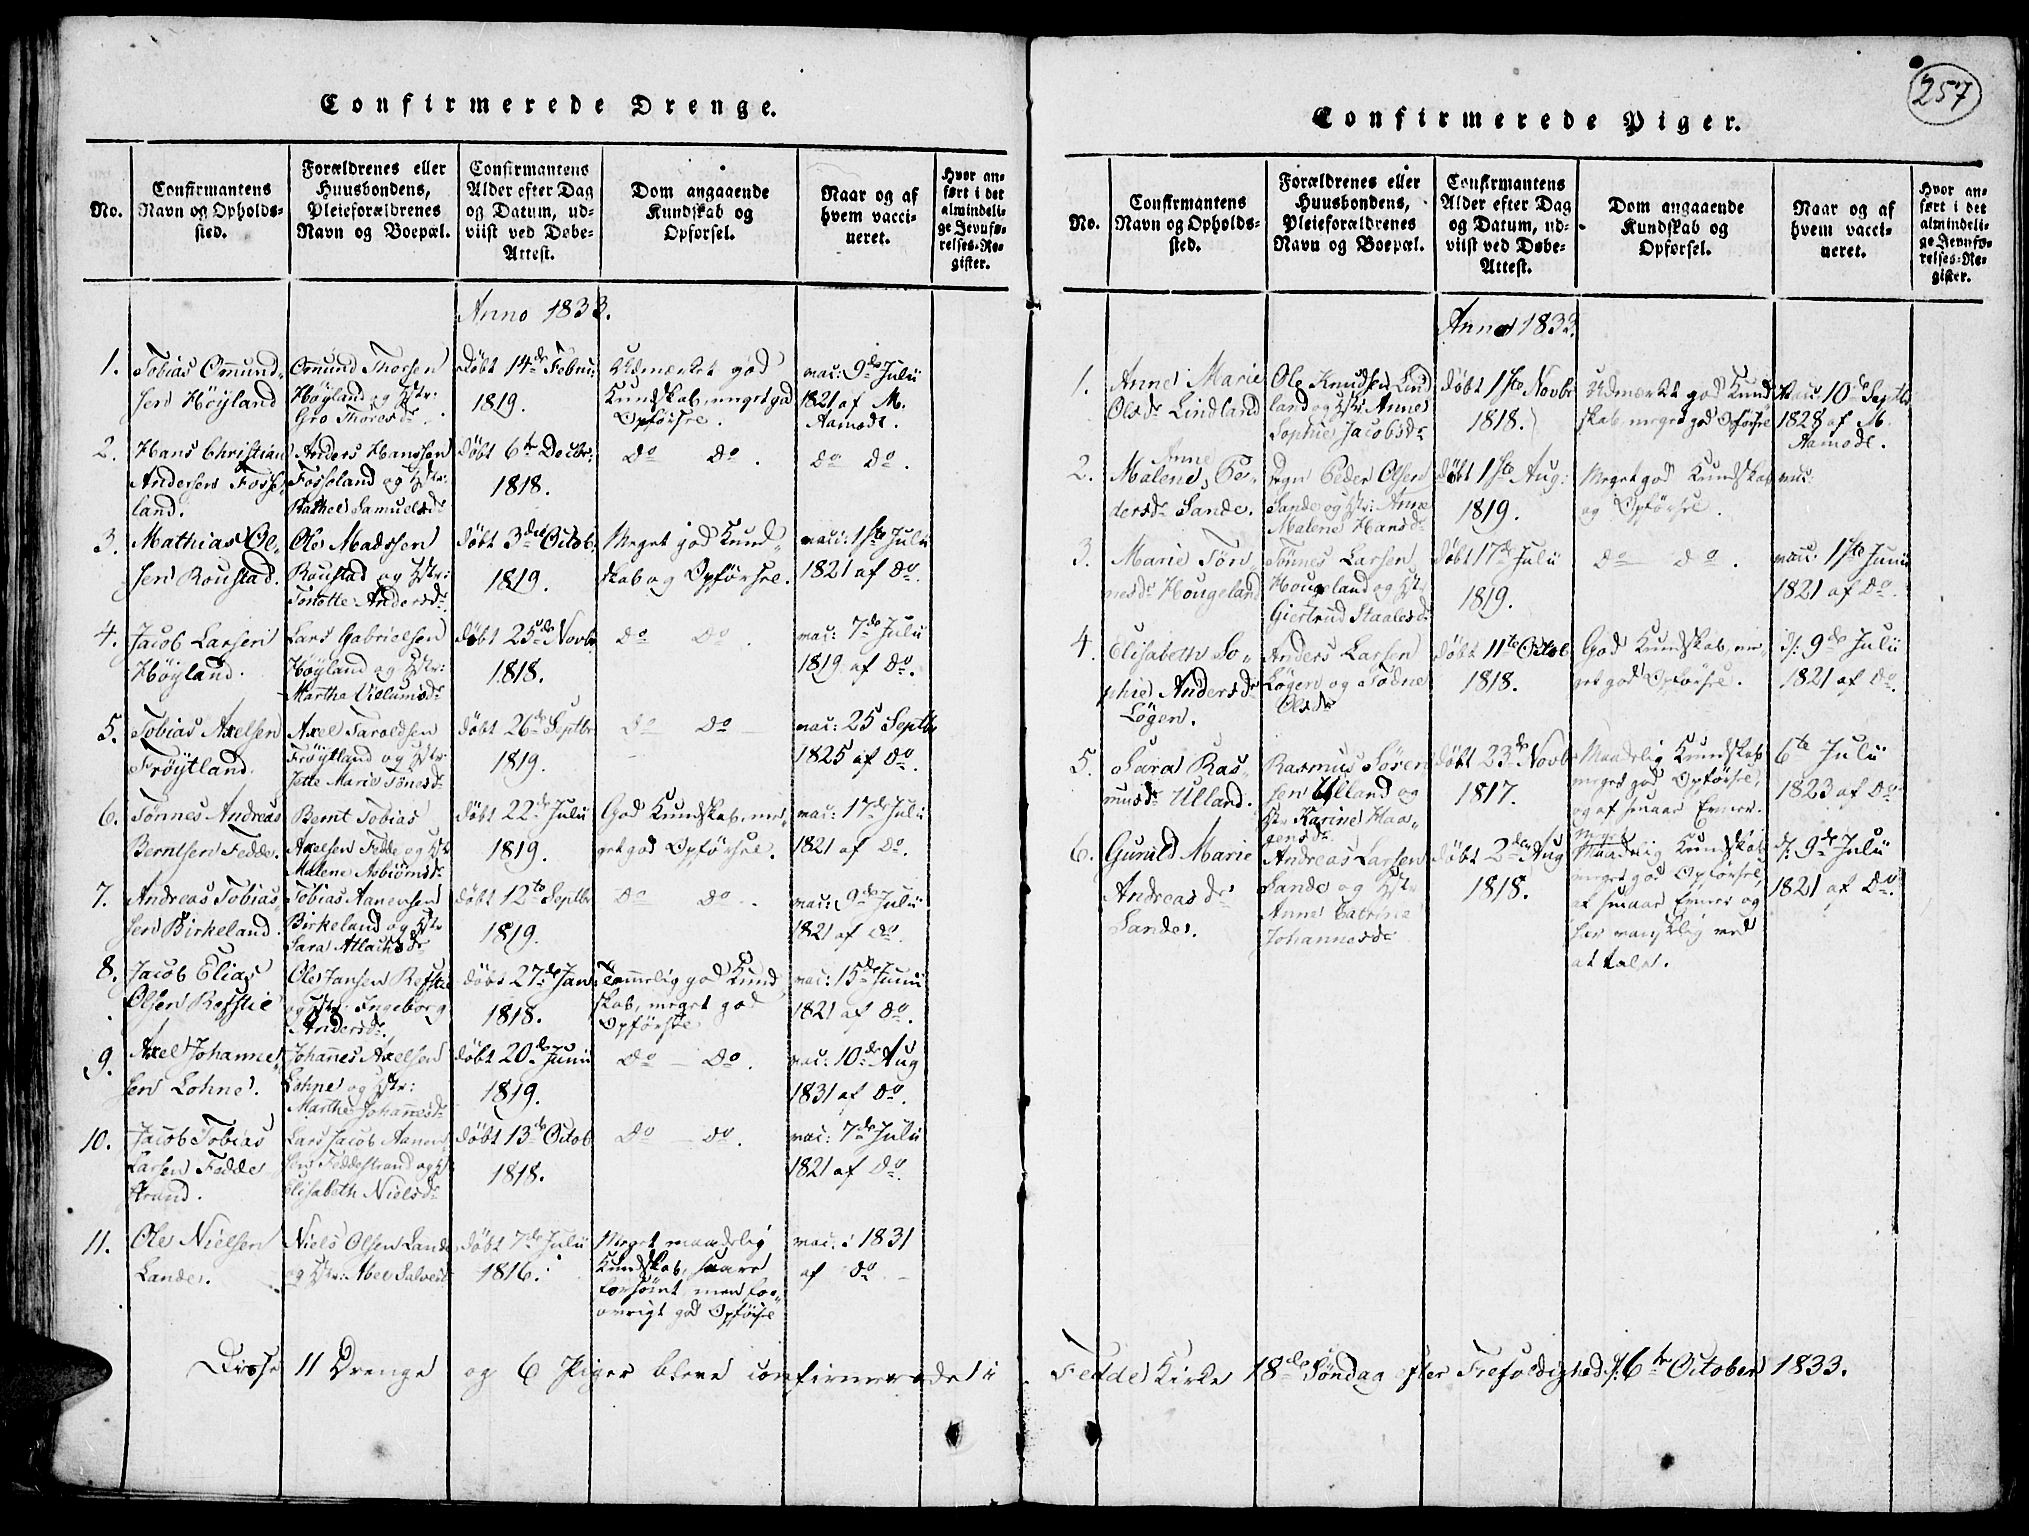 257
Confirmerede Drenge.
No.
Confirmantens
Navn og Opholds-
sted.
Forældrenes eller
Huusbondens,
Pleieforældrenes
Navn og Boepæl.
Confirmantens
Alder efter Dag
og Datum, ud-
viist ved Døbe-
Attest.
Dom angaaende
Kundskab og
Opførsel.
Naar og af
hvem vacci-
neret.
Hvor an-
ført i det
almindeli-
ge Jevnfø-
relses-Re-
gister.
Anno 1833.
1.
Tobias Omund-
sen Höyland
Omund Thorsen
Höyland og Hstr:
Gro Thoresdr.
Döbt 14de Febru:
1819.
Udmærket god
Kundskab, meget god
Opförsel.
vac: 9de Julii
1821 af M.
Aamodt.
2.
Hans Christian
Andersen Fosse-
land.
Anders Hanssen
Fosseland og Hstr:
Rachel Samuelsdr
döbt 6te Decbr:
1818.
do do.
do do.
3.
Mathias Ol-
sen Roustad.
Ole Madssen
Roustad og Hstr:
Andersdr.
döbt 3die Octob.
1819.
Meget god Kund-
skab og Opförsel.
vacc: 1ste Julii
1821 af do.
4.
Jacob Larsen
Höyland.
Lars Gabrielsen
Höyland og Hstr:
Martha Villumsdr
döbt 25de Novbr
1818.
do do.
vac: 7de Julii
1819 af do.
5.
Tobias Axelsen
Fröytland.
Axel Taroldsen
Fröytland og Hstr
Jette Marie Tönesdr
döbt 26de Septbr
1819.
do do
vac: 25 Septbr
1825 af do.
6.
Tönnes Andreas
Berntsen Fedde.
Bernt Tobias
Axelsen Fedde og Hstr
Malene Asbiörnsdr
döbt 22de Julii
1819.
God Kundskab, me-
get god Opförsel.
vac: 17de Julii
1821 af do.
7.
Andreas Tobias-
sen Birkeland.
Tobias Aanensen
Birkeland og Hstr
Sara Atlachsdr
döbt 12te Septbr
1819.
do do.
vac: 9de Julii
1821 af do.
8.
Jacob Elias
Olsen Refstie
Ole Jansen Refstie
og Hstr: Ingeborg
Andersdr.
döbt 27de Jan:
1818.
Temmelig god Kund
skab, meget god
Opförsel
vac: 15de Junii
1821 af do.
9.
Axel Johannes-
sen Lohne.
Johannes Axelsen
Lohne og Hstr:
Marthe Johannesdr
döbt 20de Junii
1819.
do – do.
vac: 10de Aug
1831 af do.
10.
Jacob Tobias
Larsen Fedde
strand.
Lars Jacob Aanen-
sen Feddestrand og H
Elisabeth Nielsdr
döbt 13de Octob
1818.
do – do.
vac: 7de Julii
1821 af do.
11.
Ole Nielsen
Lande.
Niels Olsen Lande
og Hstr: Abel Salvesdr
döbt 7de Julii
1816.
Meget maadelig
Kundskab, saare
forsömt men for-
övrigt god Opförsel
vac: i 1831
af do
Disse 11 Drenge og 6 Piger bleve confirmerede i
Confirmerede Piger.
No.
Confirmantens
Navn og Opholds-
sted.
Forældrenes eller
Huusbondens,
Pleieforældrenes
Navn og Boepæl.
Confirmantens
Alder efter Dag
og Datum, ud-
viist ved Døbe-
Attest.
Dom angaaende
Kundskab og
Opførsel.
Naar og af
hvem vacci-
neret.
Hvor an-
ført i det
almindeli-
ge Jevnfø-
relses-Re-
gister.
Anno 1833.
1.
Anne Marie
Olsdr Lindland
Ole Knudsen Lind
land og Hstr Anne
Sophie Jacobsdr
döbt 1ste Novbr
1818.
Udmærkt god Kund
skab, meget god Opförsel
Vac: 10de Septbr
1828 af M.
Aamodt.
2.
Anne
Malene Pe-
dersdr Sande.
Peder Olsen
Sande og Hstr: Anne
Malene Hansdr
döbt 1ste Aug:
1819.
Meget god Kundskab
og Opförsel.
vac:
3.
Marie Tön-
nesdr Hougeland
Tönnes Larsen
Hougeland og Hstr
Giertrud Staalesdr
döbt 17de Julii
1819.
do do.
vac: 1ste Junii
1821 af do.
4.
Elisabeth So-
phie Andersdr
Lögen.
Anders Larsen
Lögen og Todne
Olsdr
döbt 11te Octob
1818.
God Kundskab, me-
get god Opförsel.
9de Julii
1821 af do.
5.
Sara Ras-
musdr Ulland.
Rasmus Sören
sen Ulland og
Hstr Karine Haa-
gensdr
döbt 23de Novbr
1817.
Maadelig Kundskab
meget god Opförsel,
og af smaae Evner.
6te Julii
1823 af do
6.
Gunild Marie
Andreasdr
Sande.
Andreas Larsen
Sande og Hstr
Anne Catrine
Johannesdr
döbt 2den Aug
1818.
Meget
Maadelig Kundskab
meget god Opförsel,
af smaae Evner og
vanskelig ved
at tale.
9de Julii
1821 af do.
Fedde Kirke 18de Söndag efter Trefoldighed 6te October 1833.